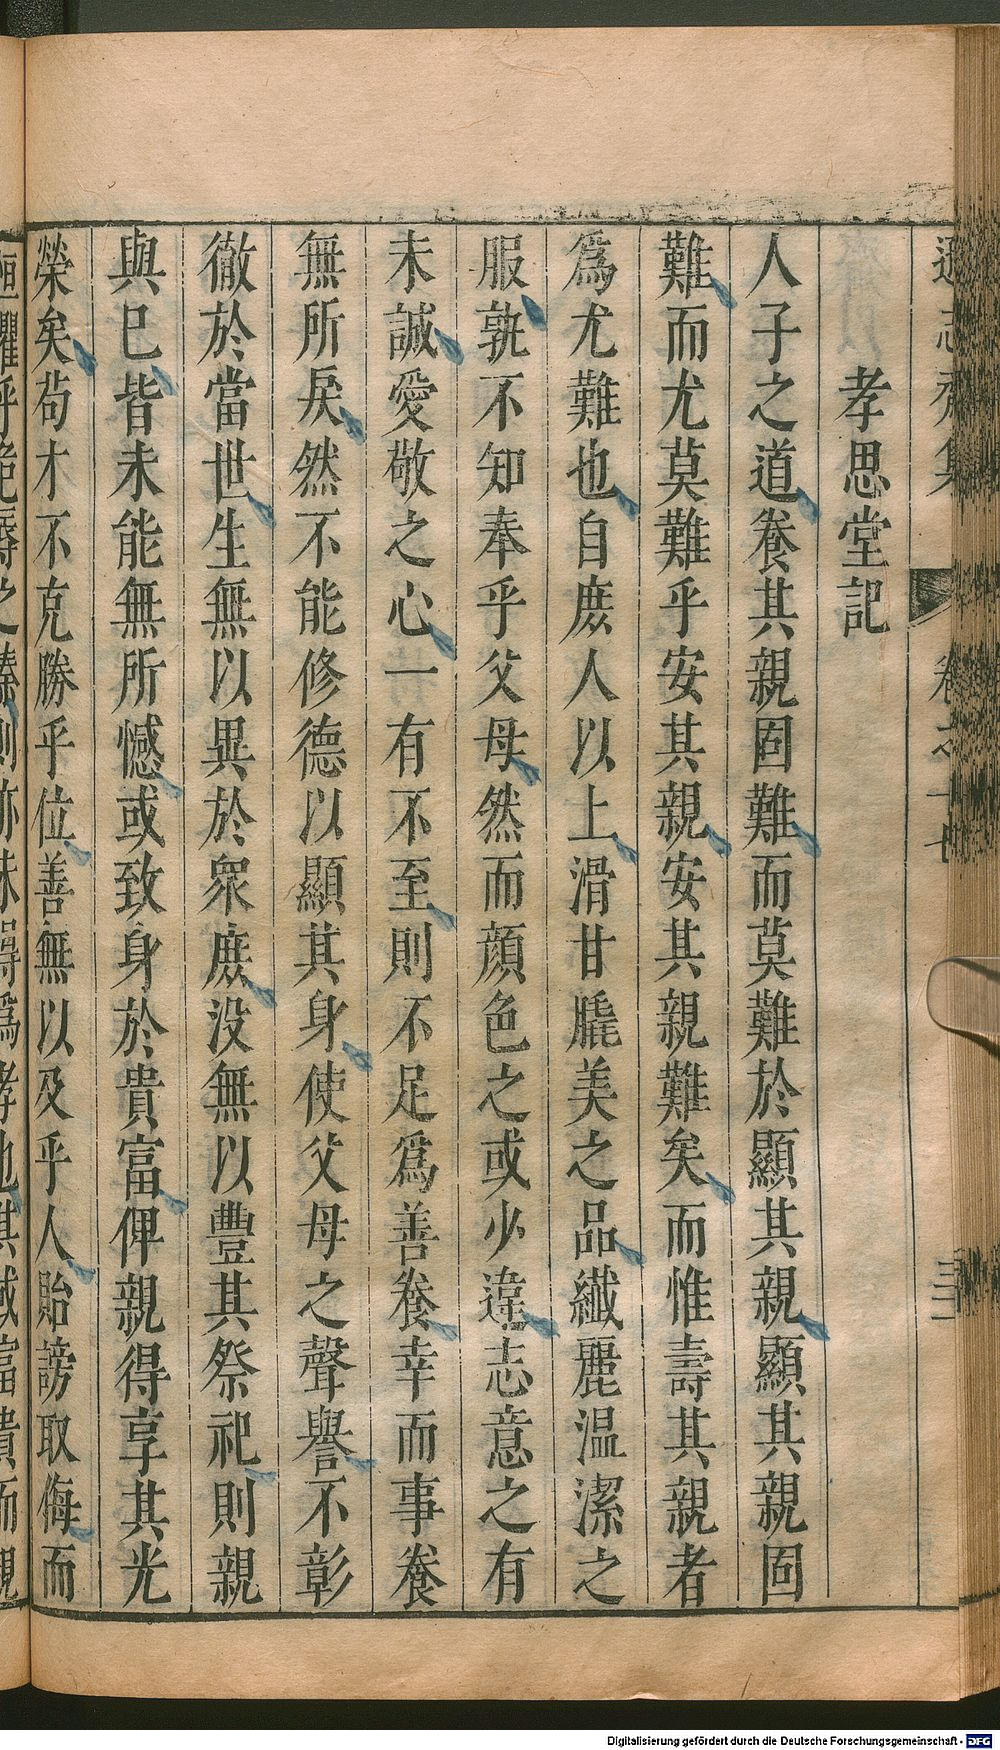 孝思堂記
人子之道養其親固難而莫難於顯其親顯其親固
難而尤莫難乎安其親安其親難矣而惟壽其親者
爲尤難也自庶人以上滑甘膬美之品纖麗温潔之
服孰不知奉乎父母然而顔色之或少違志意之有
未誠愛敬之心一有不至則不足爲善養幸而事養
無所戾然不能修德以顯其身使父母之聲譽不彰
徹於當世生無以異於衆庶没無以豐其祭祀則親
與巳皆未能無所憾或致身於貴富俾親得享其光
榮矣茍才不克勝乎位善無以及乎人貽謗取侮而
Digitalisierung gefördert durch die Deutsche Forschungsgemeinschaft - DFG